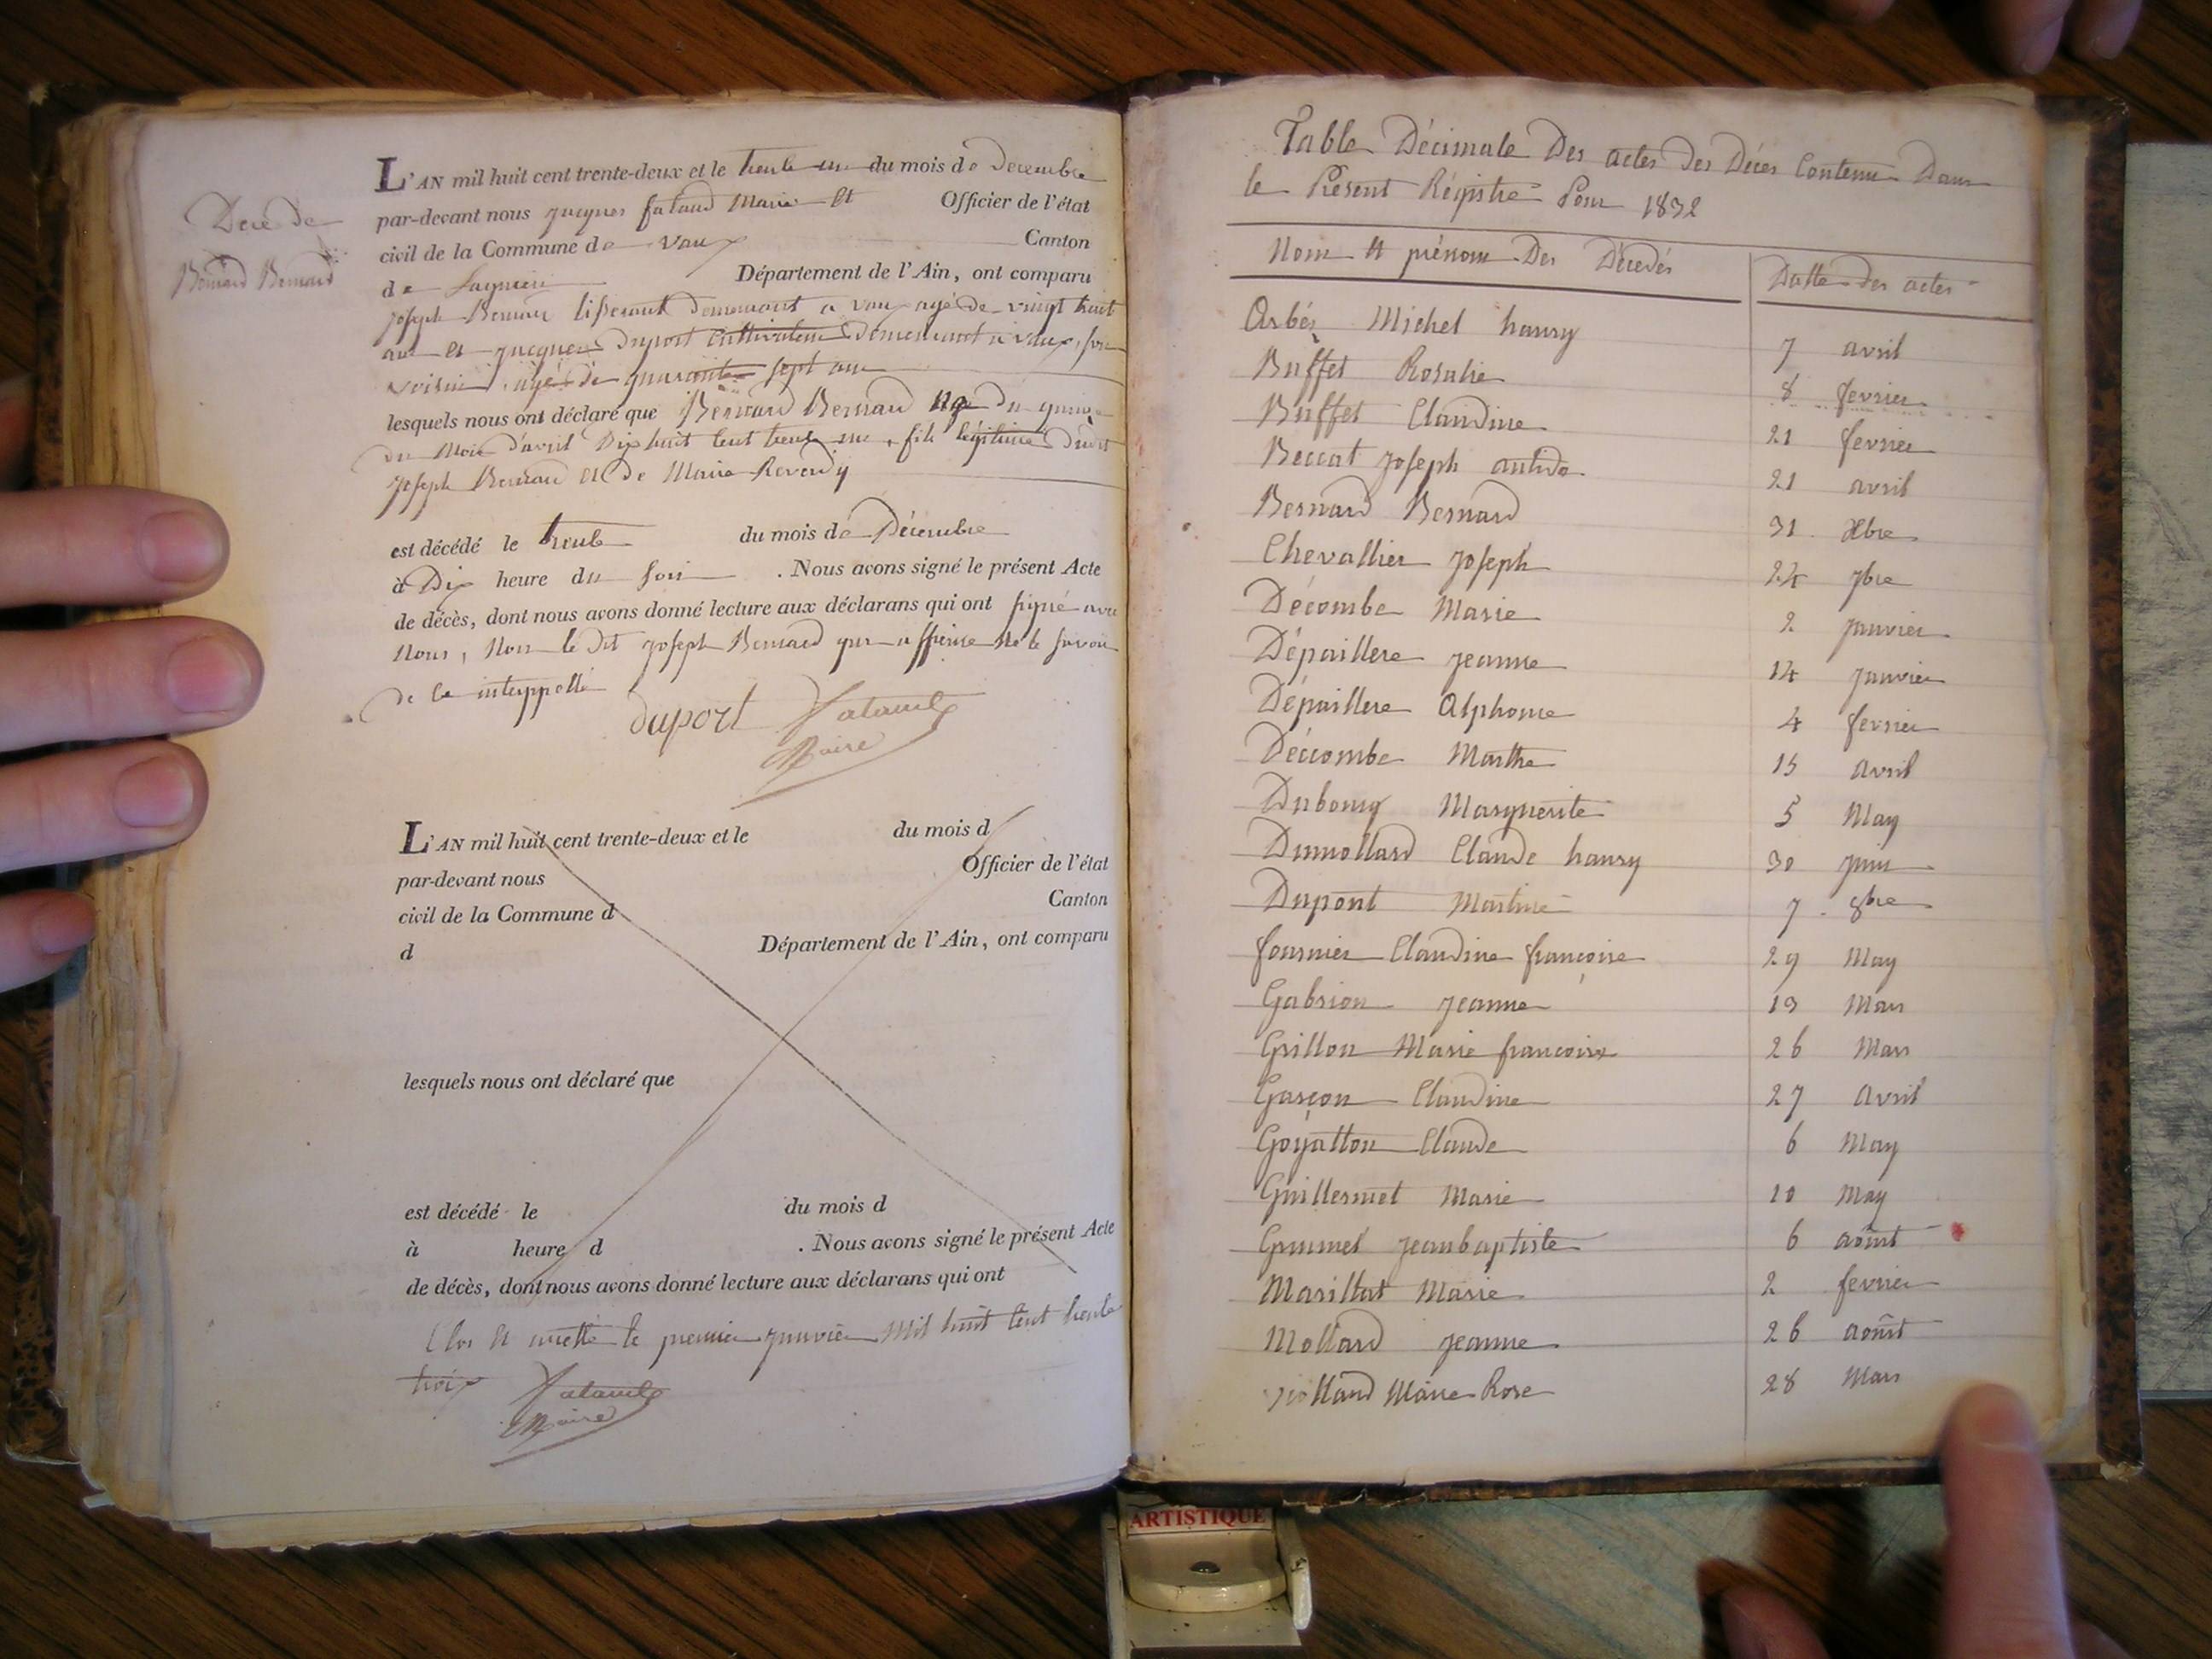 Decè de
Bernard Bernard
L'AN mil huit cent trente-deux et le trente un du mois de Decembre
par-devant nous Jacques fataud Maire et Officier de l'état
civil de la Commune de Vaux Canton
de Lagnieu Département de l'Ain, ont comparu
joseph Bernard tisserant demeurant a Vaux agé de vingt huit
ans et jacques duport cultivateur demeurant a Vaux, son
voisin agé de quarante sept ans
lesquels nous ont déclaré que Bernard Bernard né du quinze
du Mois d'avril Dix huit cent trente un, fils légitime dudit
joseph Bernard et de Marie Reverdy
est décédé le trente du mois de Décembre
à Dix heure du soir . Nous avons signé le présent Acte
de décès, dont nous avons donné lecture aux déclarans qui ont signé avec
Nous, Non le dit joseph Bernard qui a affirmé ne le savoir
de ce interppellé
duport
Maire
L'AN mil huit cent trente-deux et le du mois d
par-devant nous Officier de l'état
civil de la Commune d Canton
d Département de l'Ain, ont comparu
lesquels nous ont déclaré que
est décédé le du mois d
à heure d . Nous avons signé le présent Acte
de décès, dont nous avons donné lecture aux déclarans qui ont
Clos et arretté le premier janvier Mil huit cent trente
trois
Maire
Table Décimale Des actes Des Décès Contenu Dans
le Présent Régistre Pour 1832
Nom et prénom Des Décedés Datte des actes
Arbéz Michel hanry 7 avril
Buffet Rosalie 8 fevrier
Buffet Claudine 21 fevrier
Beccat joseph antide 21 avril
Bernard Bernard 31 Xbre
Chevallier joseph 24 7bre
Décombe Marie 2 janvier
Dépaillere jeanne 14 janvier
Dépaillere Alphonse 4 fevrier
Déccombe Marthe 15 avril
Dubourg Marguerite 5 May
Dumollard Claude hanry 30 juin
Dupont Martine 7 8bre
fournier Claudine françoise 29 May
Gabrion jeanne 19 Mars
Grillon Marie francoise 26 Mars
Gasçon Claudine 27 Avril
Goyatton Claude 6 May
Guillermet Marie 10 May
Grumel jeanbaptiste 6 août
Marillat Marie 2 fevrier
Mollard jeanne 26 août
Marie Rose 28 Mars
ARTISTIQUE